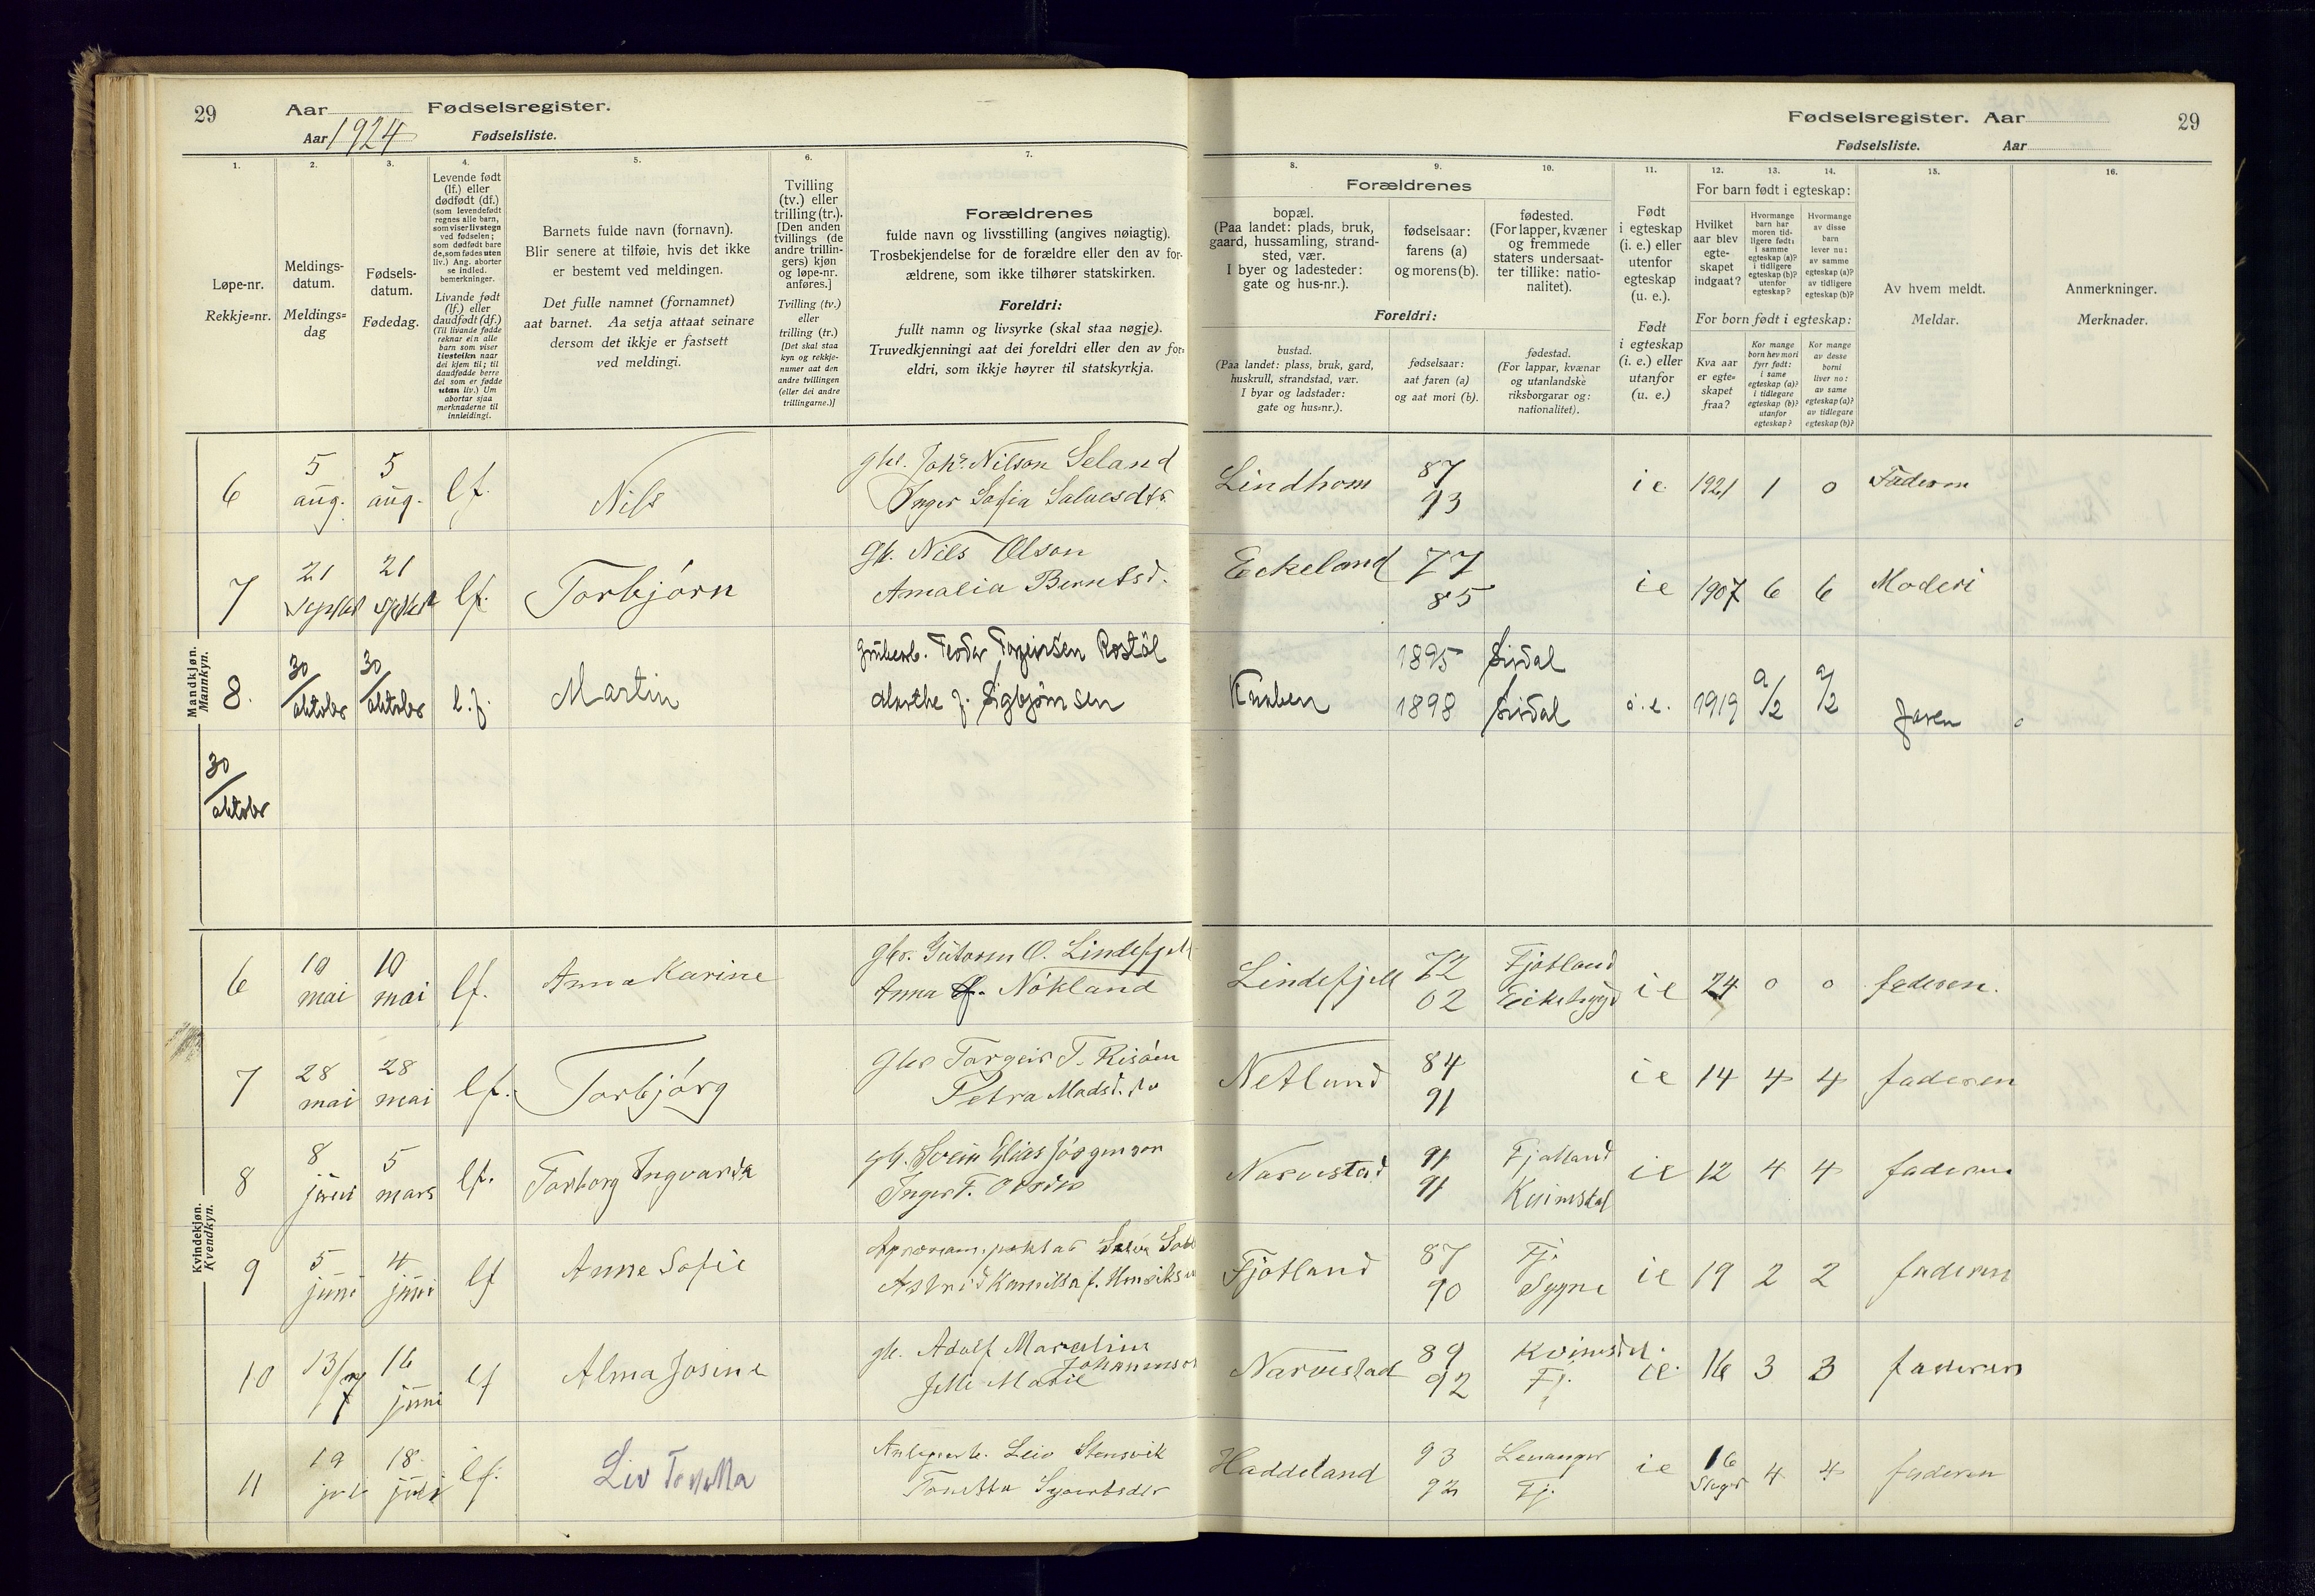 29 Aar Fødselsregister.
Aar 1924 Fødselsliste.
Fødselsregister. Aar 29
Fødselsliste. Aar
1. 2. 3. 4. 5. 6. 7.
Løpe-nr.
Rekkje=nr.
Meldings-
datum.
Meldings=
dag
Fødsels-
datum.
Fødedag.
Levende født
(lf.) eller
dødfødt (df.)
(som levendefødt
regnes alle barn,
som viser livstegn
ved fødselen;
som dødfødt bare
de, som fødes uten
liv.) Ang. aborter
se indled.
bemerkninger.
Livande født
(lf.) eller
daudfødt (df.)
(Til livande fødde
reknar ein alle
barn som viser
livsteikn naar
dei kjem til; til
daudfødde berre
dei som er fødde
utan liv.) Um
abortar sjaa
merknaderne til
innleidingi.
Barnets fulde navn (fornavn).
Blir senere at tilføie, hvis det ikke
er bestemt ved meldingen.
Det fulle namnet (fornamnet)
aat barnet. Aa setja attaat seinare
dersom det ikkje er fastsett
ved meldingi.
Tvilling
(tv.) eller
trilling (tr.).
[Den anden
tvillings (de
andre trillin-
gers) kjøn
og løpe-nr.
anføres.]
Tvilling (tv.)
eller
trilling (tr.)
[Det skal staa
kyn og rekkje-
numer aat den
andre tvillingen
(eller dei andre
trillingarne.)]
Forældrenes
fulde navn og livsstilling (angives nøiagtig).
Trosbekjendelse for de forældre eller den av for-
ældrene, som ikke tilhører statskirken.
Foreldri:
fullt namn og livsyrke (skal staa nøgje).
Truvedkjenningi aat dei foreldri eller den av for=
eldri, som ikkje høyrer til statskyrkja.
8. 9. 10. 11. 12. 13. 14. 15. 16.
Forældrenes
bopæl.
(Paa landet: plads, bruk,
gaard, hussamling, strand-
sted, vær.
I byer og ladesteder:
gate og hus-nr.).
fødselsaar:
farens (a)
og morens (b).
fødested.
(For lapper, kvæner
og fremmede
staters undersaat-
ter tillike: natio-
nalitet).
Foreldri:
bustad.
(Paa landet: plass, bruk, gard,
huskrull, strandstad, vær.
I byar og ladstader:
gate og hus=nr.).
fødselsaar:
aat faren (a)
og aat mori (b).
fødestad.
(For lappar, kvænar
og utanlandske
riksborgarar og:
nationalitet).
Født
i egteskap
(i. e.) eller
utenfor
egteskap
(u. e.).
Født
i egteskap
(i. e.) eller
utanfor
egteskap
(u. e.)
For barn født i egteskap:
Hvilket
aar blev
egte-
skapet
indgaat?
Hvormange
barn har
moren tid-
ligere født:
i samme
egteskap (a)?
i tidligere
egteskap (b)?
utenfor
egteskap?
Hvormange
av disse
barn
lever nu:
av samme
egteskap (a)?
av tidligere
egteskap (b)?
For born født i egteskap:
Kva aar
er egte=
skapet
fraa?
Kor mange
born hev mori
fyrr født:
i same
egteskap (a)?
i tidlegare
egteskap (b)?
utanfor
egteskap?
Kor mange
av desse
borni
liver no:
av same
egteskap (a)?
av tidlegare
egteskap (b)?
Av hvem meldt.
Meldar.
Anmerkninger.
Merknader.
Mandkjøn.
Mannkyn.
6 5 aug. 5 aug. lf. Nils gbr. Johs. Nilson Seland
Inger Sofia Salvesdtr. Lindhom 87 93 i e 1921 1 0 Faderen
7 21 21 lf. Torbjörn Gb. Nils Olson
Amalia Berntsd. Eekeland 77 85 i e 1907 6 6 Moderi
8. 30/oktober 30/oktober l.f. Martin Grubearb. Teodor Torgeirsen Rostöl
Marthe f. Sigbjörnsen Knaben 1895 1898 Sirdal Sirdal i.e. 1919 a/2 a/2 faren
30/oktober
Kvindekjøn.
Kvendkyn.
6 10 mai 10 mai lf. Anna Karine gbr. Gutorm O. Lindefjell
Anna Nökland Lindefjell 72 02 Fjotland Eikebygd i e 24 0 0 faderen.
7 28 mai 28 mai lf. Torbjörg gbr Torgeir T. Risöen
Petra Madsd. Netland 84 91 i e 14 4 4 faderen
8 8 juni 5 mars lf. Torborg Ingvarda gb. Svein Elias Jörgenson
Inger T. Narvestad 91 91 Fjotland Kvinesdal i e 12 4 4 faderen
9 5 juni 4 juni lf Anne Sofie
Astrid Kamilla f. Henriksen Fjotland 87 90 Fj. Sygne i e 19 2 2 faderen
10 13/7 16 juni lf Alma Josine gb. Adolf Marcelius Johannesen
Marie Narvestad 89 92 Kvinesdal. Fj. ie. 16 3 3 faderen
11 19 juli 18. juli lf. Liv Tonetta Anlegsarb. Leiv Stensvik
Tonetta Syvertsdtr Haddeland 93 92 Levanger Fj. i e 16 4 4 faderen